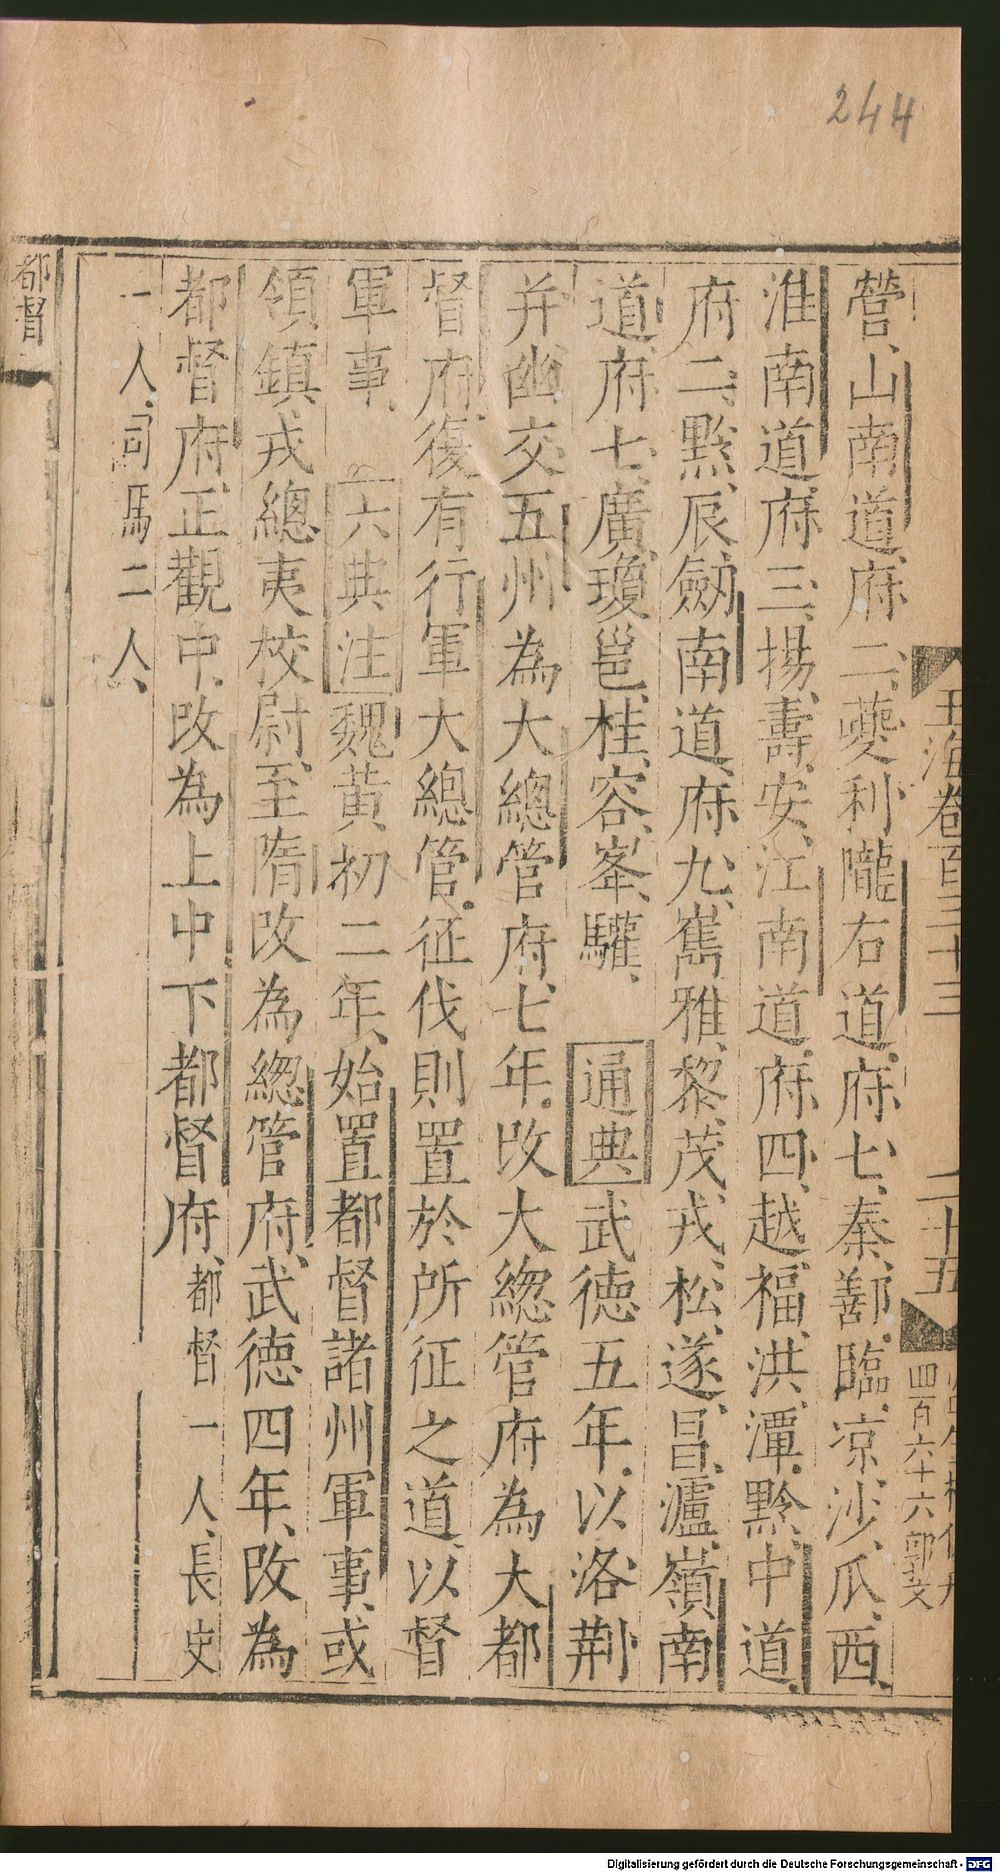 244
玉海卷百三十三
二十五
四百六十六郭文
營、山南道、府二、夔、利隴右道、府七、秦、鄯、臨、凉、沙、瓜、西、
淮南道、府三、揚、壽、安、江南道、府四、越、福、洪、潭、黔、中道、
府二、黔、辰、劒南道、府九、雟、雅、黎、茂、戎、松、遂、昌、瀘、嶺南
道、府七、廣、瓊、邕、桂、容、峯、驩、通典武德五年、以洛、荆
并幽交五州為大總管府、七年、攺大總管府為大都
督府、復有行軍大總管。征伐則置於所征之道、以督
軍事、六典注魏黃初二年、始置都督諸州軍事、或
領鎮戎總夷校尉、至隋攺為總管府、武德四年、攺為
都督府、正觀中、攺為上中下都督府、都督一人、長史
一人、司馬二人、
都督
Digitalisierung gefördert durch die Deutsche Forschungsgemeinschaft - DFG